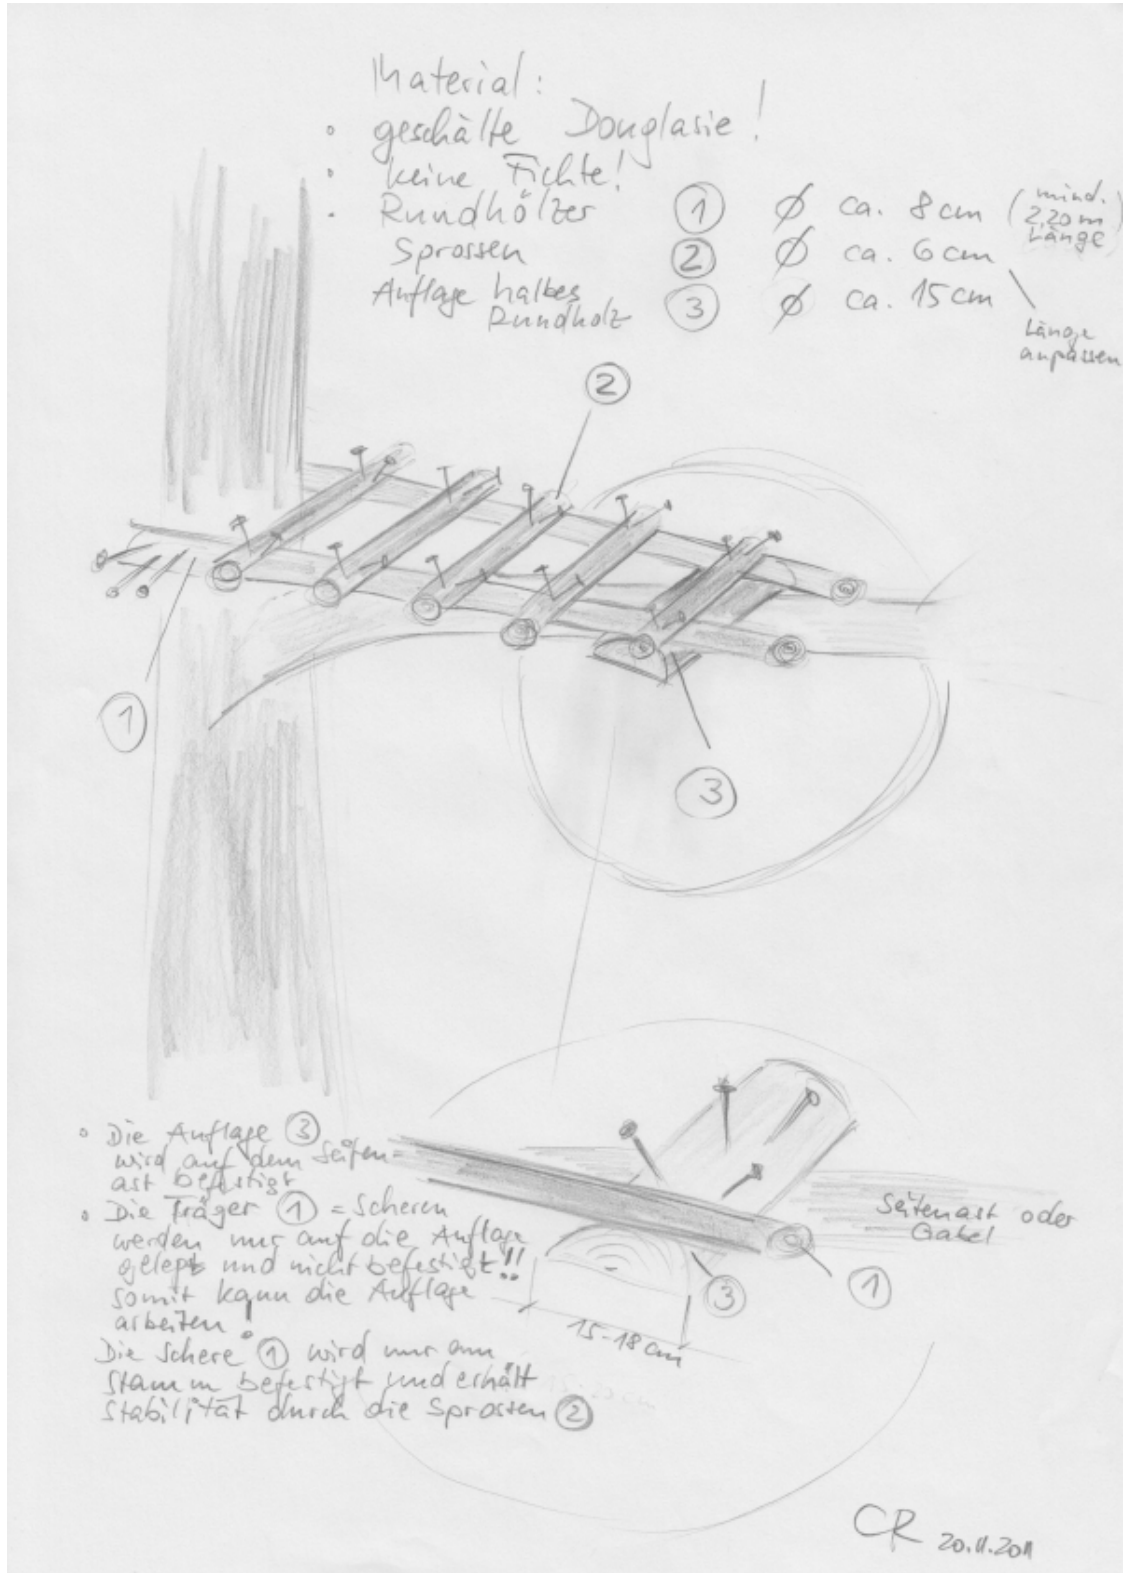 Material:
• geschälte Douglasie!
• keine Fichte!
• Rundhölzer ① Ø ca. 8 cm (mind. 2,20 m Länge)
Sprossen ② Ø ca. 6 cm
Auflage halbes Rundholz ③ Ø ca. 15 cm
Länge
anpassen
②
①
③
• Die Auflage ③
wird auf dem Seiten=
ast befestigt
• Die Träger ① = Scheren
werden nur auf die Auflage
gelegt und nicht befestigt!!
somit kann die Auflage
arbeiten!
Die Schere ① wird nur am
Stamm befestigt und erhält
Stabilität durch die Sprossen ②
Seitenast oder
Gabel
①
③
15-18 cm
CR 20.11.2011